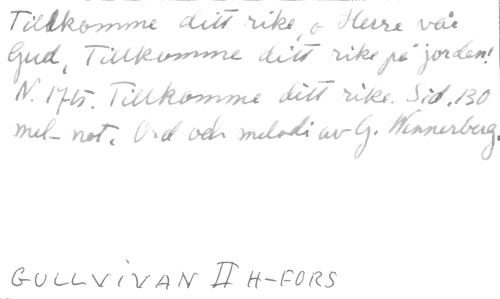 Tillkomme ditt rike, o Herre vår
Gud, Tillkomme ditt rike på jorden!
N. 1715. Tillkomme ditt rike. Sid. 130
mel- not. Ord och melodi av G. Wennerberg.
GULLVIVAN II H-FORS